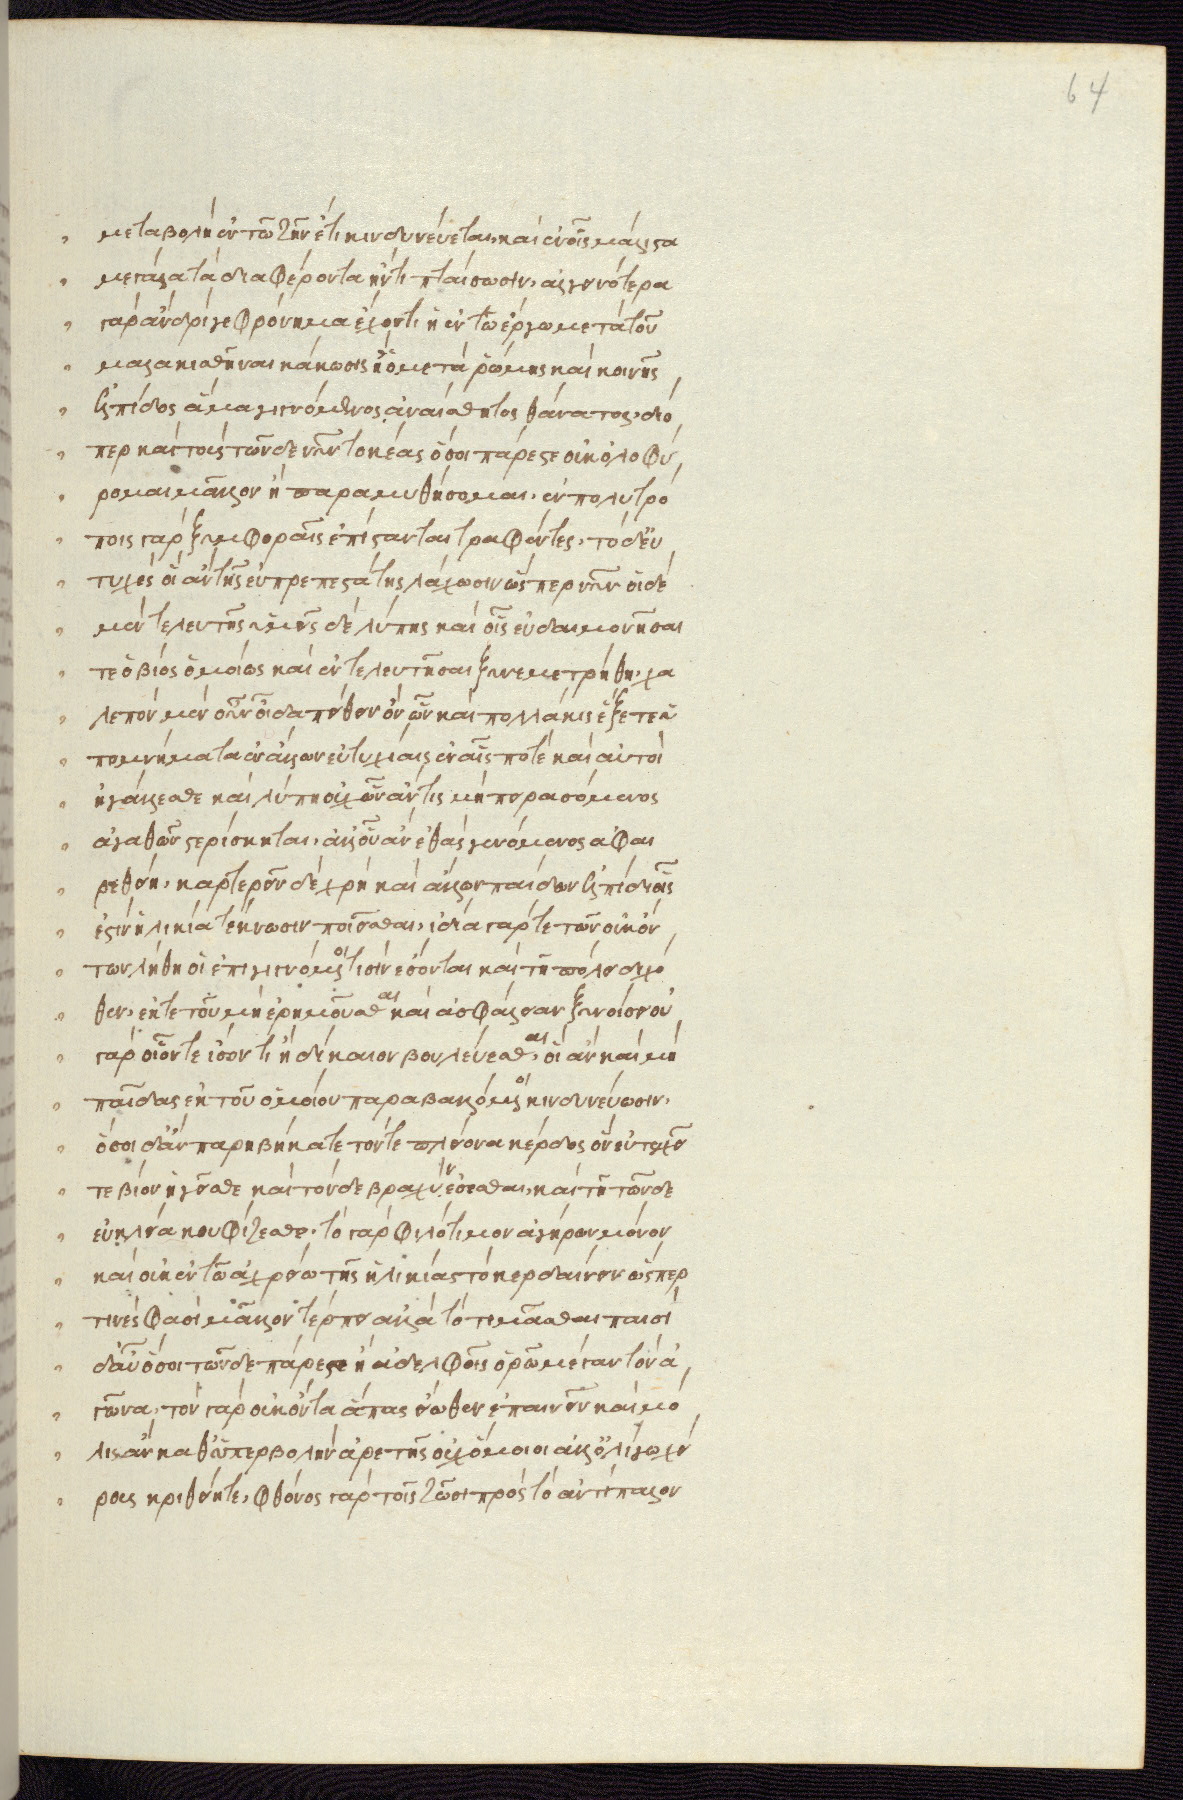 64
μεταβολὴ ἐν τῶ ζῆν ἔτι κινδυνεύεται, καὶ ἐν οἷς μάλιστα
μεγάλα τὰ διαφέροντα ἤν τι πταίσωσιν, ἀλγεινότερα
γὰρ ἀνδρί γε φρόνημα ἔχοντι ἡ ἐν τῶ ἔργω μετὰ τοῦ
μαλακισθῆναι κάκωσις ἢ ὁ μετὰ ῥώμης καὶ κοινῆς
ἐλπίδος ἅμα γιγνόμενος ἀναίσθητος θάνατος, διό
περ καὶ τοὺς τῶνδε νῦν τοκέας ὅσοι πάρεστε οὐκ ὀλοφύ
ρομαι μᾶλλον ἢ παραμυθήσομαι, ἐν πολυτρό
ποις γὰρ ξυμφοραῖς ἐπίστανται τραφέντες, τὸ δ' εὐ
τυχὲς οἳ ἂν τῆς εὐπρεπεστάτης λάχωσιν ὥσπερ νῦν οἵδε
μὲν τελευτῆς ὑμεῖς δὲ λύπης καὶ οἷς εὐδαιμονῆσαί
τε ὁ βίος ὁμοίως καὶ ἐντελευτῆσαι ξυνεμετρήθη, χα
λεπὸν μὲν οὖν οἶδα πείθειν ὂν ὧν καὶ πολλάκις ἕξετε ὑ
πομνήματα ἐν ἄλλων εὐτυχίαις ἐν αἷς ποτὲ καὶ αὐτοὶ
ἠγάλλεσθε καὶ λύπη οὐχ ὧν ἄν τις μὴ πειρασόμενος
ἀγαθῶν στερίσκηται, ἀλλ' οὗ ἂν ἐθὰς γενόμενος ἀφαι
ρεθείη, καρτερεῖν δὲ χρὴ καὶ ἄλλων παίδων ἐλπίδι οἷς
ἔτι ἡλικία τέκνωσιν ποιεῖσθαι, ἰδία γάρ τε τῶν οὐκ ὄν
των λήθη οἱ ἐπιγιγνόμενοί τισιν ἔσονται καὶ τῆ πόλει διχό
θεν, ἔκ τε τοῦ μὴ ἐρημοῦσθαι καὶ ἀσφάλειαν ξυνοίσει οὐ
γὰρ οἷόν τε ἴσόν τι ἢ δίκαιον βουλεύεσθαι, οἳ ἂν καὶ μὴ
παῖδας ἐκ τοῦ ὁμοίου παραβαλλόμενοι κινδυνεύωσιν,
ὅσοι δ' ἂν παρηβήκατε τόν τε πλείονα κέρδος ὃν εὐτυχεῖ
τε βίον ἡγεῖσθε καὶ τόνδε βραχὺν ἔσεσθαι, καὶ τῆ τῶνδε
εὐκλεία κουφίζεσθε, τὸ γὰρ φιλότιμον ἀγήρων μόνον
καὶ οὐκ ἐν τῶ ἀχρείω τῆς ἡλικίας τὸ κερδαίνειν ὥσπερ
τινές φασι μᾶλλον τέρπει ἀλλὰ τὸ τιμᾶσθαι παισὶ
δ' αὖ ὅσοι τῶνδε πάρεστε ἢ ἀδελφοῖς ὁρῶ μέγαν τὸν ἀ
γῶνα, τὸν γὰρ οὐκ ὄντα ἅπας εἴωθεν ἐπαινεῖν καὶ μό
λις ἂν καθ' ὑπερβολὴν ἀρετῆς οὐχ ὅμοιοι ἀλλ' ὀλίγω χεί
ρους κριθεῖτε, φθόνος γὰρ τοῖς ζῶσι πρὸς τὸ ἀντίπαλον